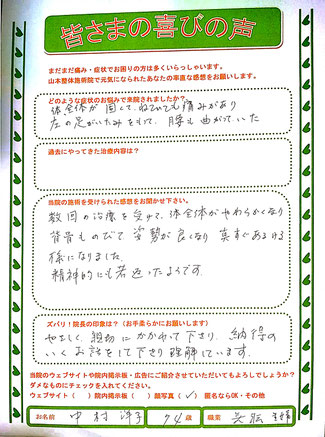 皆さまの喜びの声
まだまだ痛み・症状でお困りの方は多くいらっしゃいます。
山本整体施術院で元気になられたあなたの率直な感想をお願いします。
どのような症状のお悩みで来院されましたか?
体全体が固くて、ねていても痛みがあり
左の足がいたみをもって、腰も曲がっていた
過去にやってきた治療内容は?
当院の施術を受けられた感想をお聞かせ下さい。
数回の治療を受けて、体全体がやわらかくなり
背骨ものびて姿勢が良くなり真すぐあるける
様になりました。
精神的にも若返ったようです。
ズバリ!院長の印象は?(お手柔らかにお願いします)
やさしく、親切にかかわって下さり、納得の
いくお話をして下さり理解しています。
当院のウェブサイトや院内掲示板・広告にご紹介させていただいてもよろしでしょうか?
ダメなものにチェックを入れてください。
ウェブサイト( )院内掲示板( )顔写真(✓)匿名ならOK・その他
お名前 中村 洋子 74歳 職業 主婦